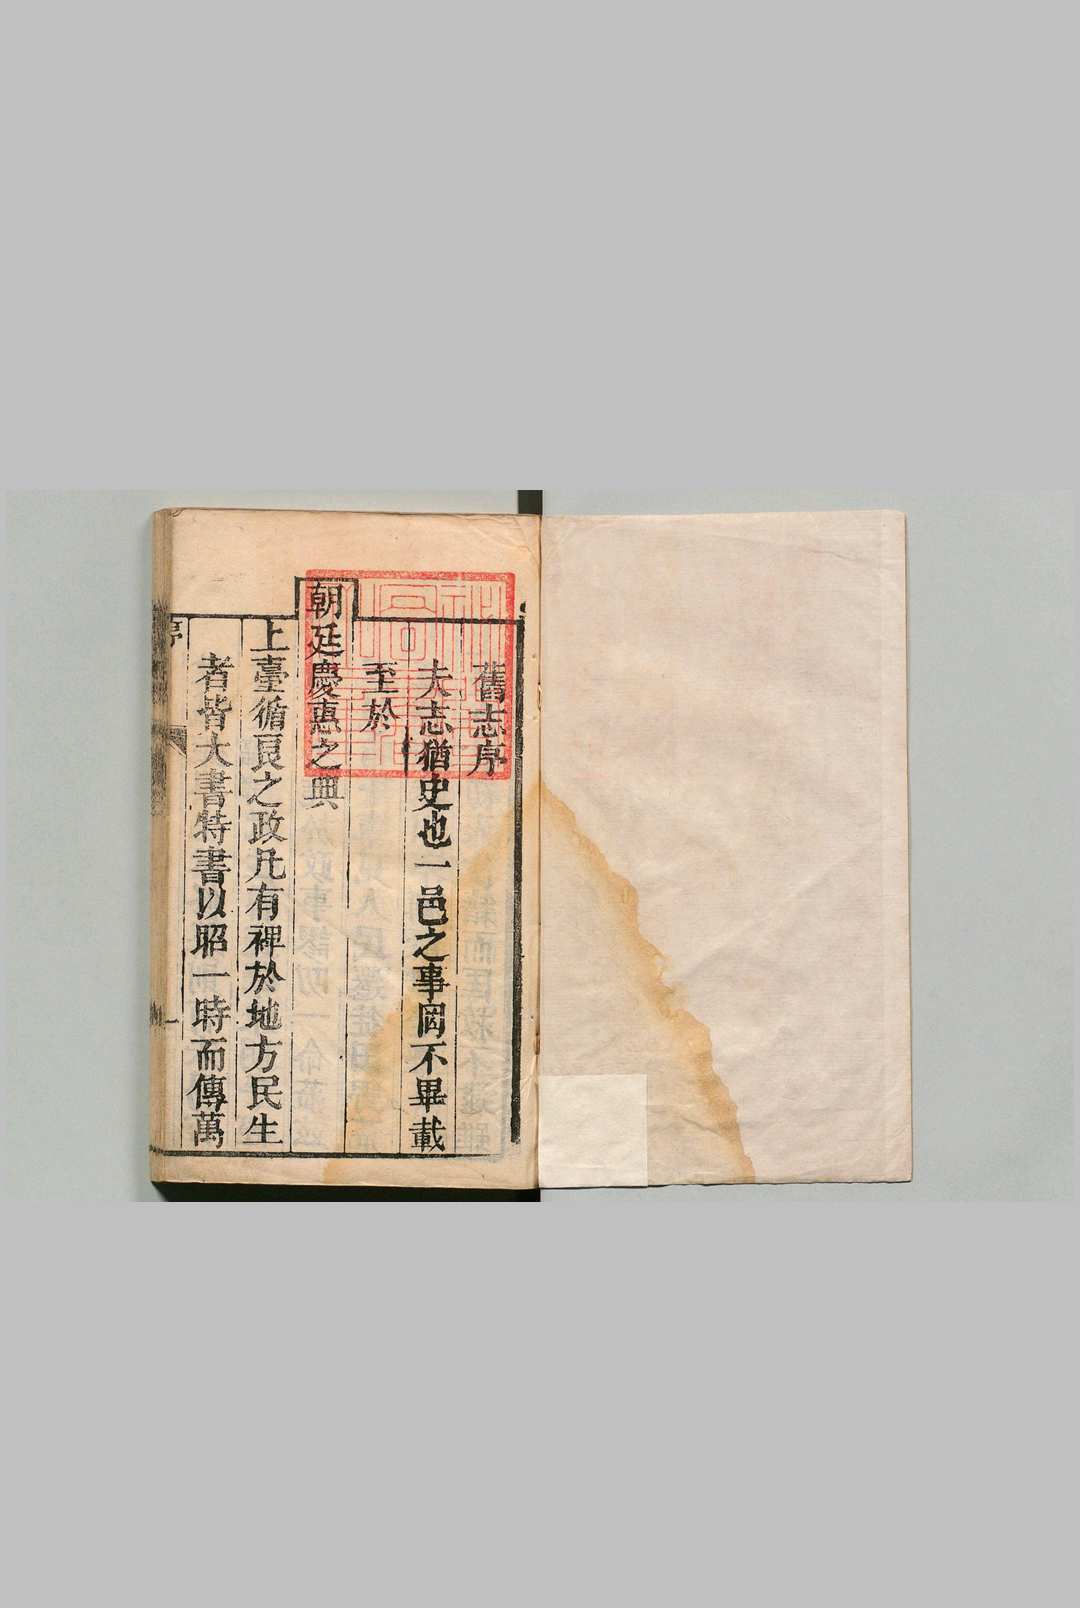 舊志序
夫志猶史也一邑之事罔不畢載
至於
朝廷慶惠之典
上臺循良之政凡有裨於地方民生
者皆大書特書以昭一時而傳萬